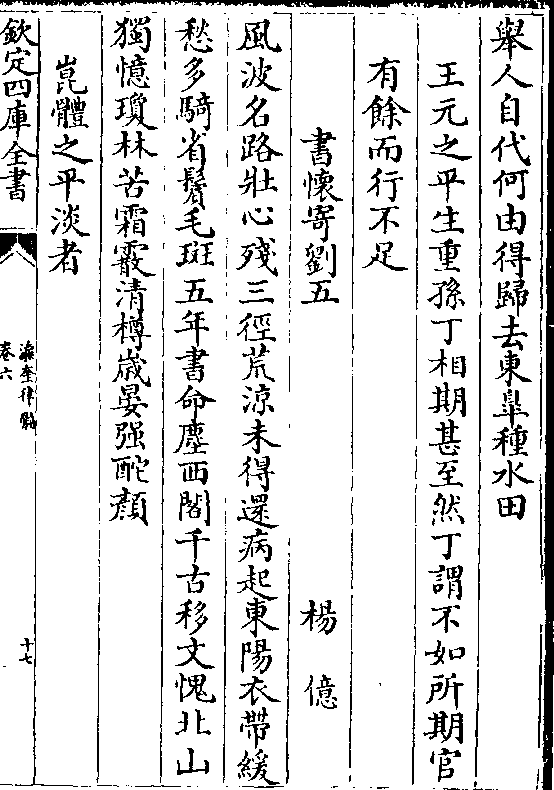 舉人自代何由得歸去東臯種水田
王元之平生重孫丁相期甚至然丁謂不如所期官
有餘而行不足
書懷寄劉五 楊億
風波名路壯心殘三徑荒涼未得還病起東陽衣帶緩
愁多騎省鬢毛斑五年書命塵西閣千古移文愧北山
獨憶瓊林苦霜霰清樽歳晏强酡顔
崑體之平淡者
欽定四庫全書
瀛奎律髓
卷六
十七